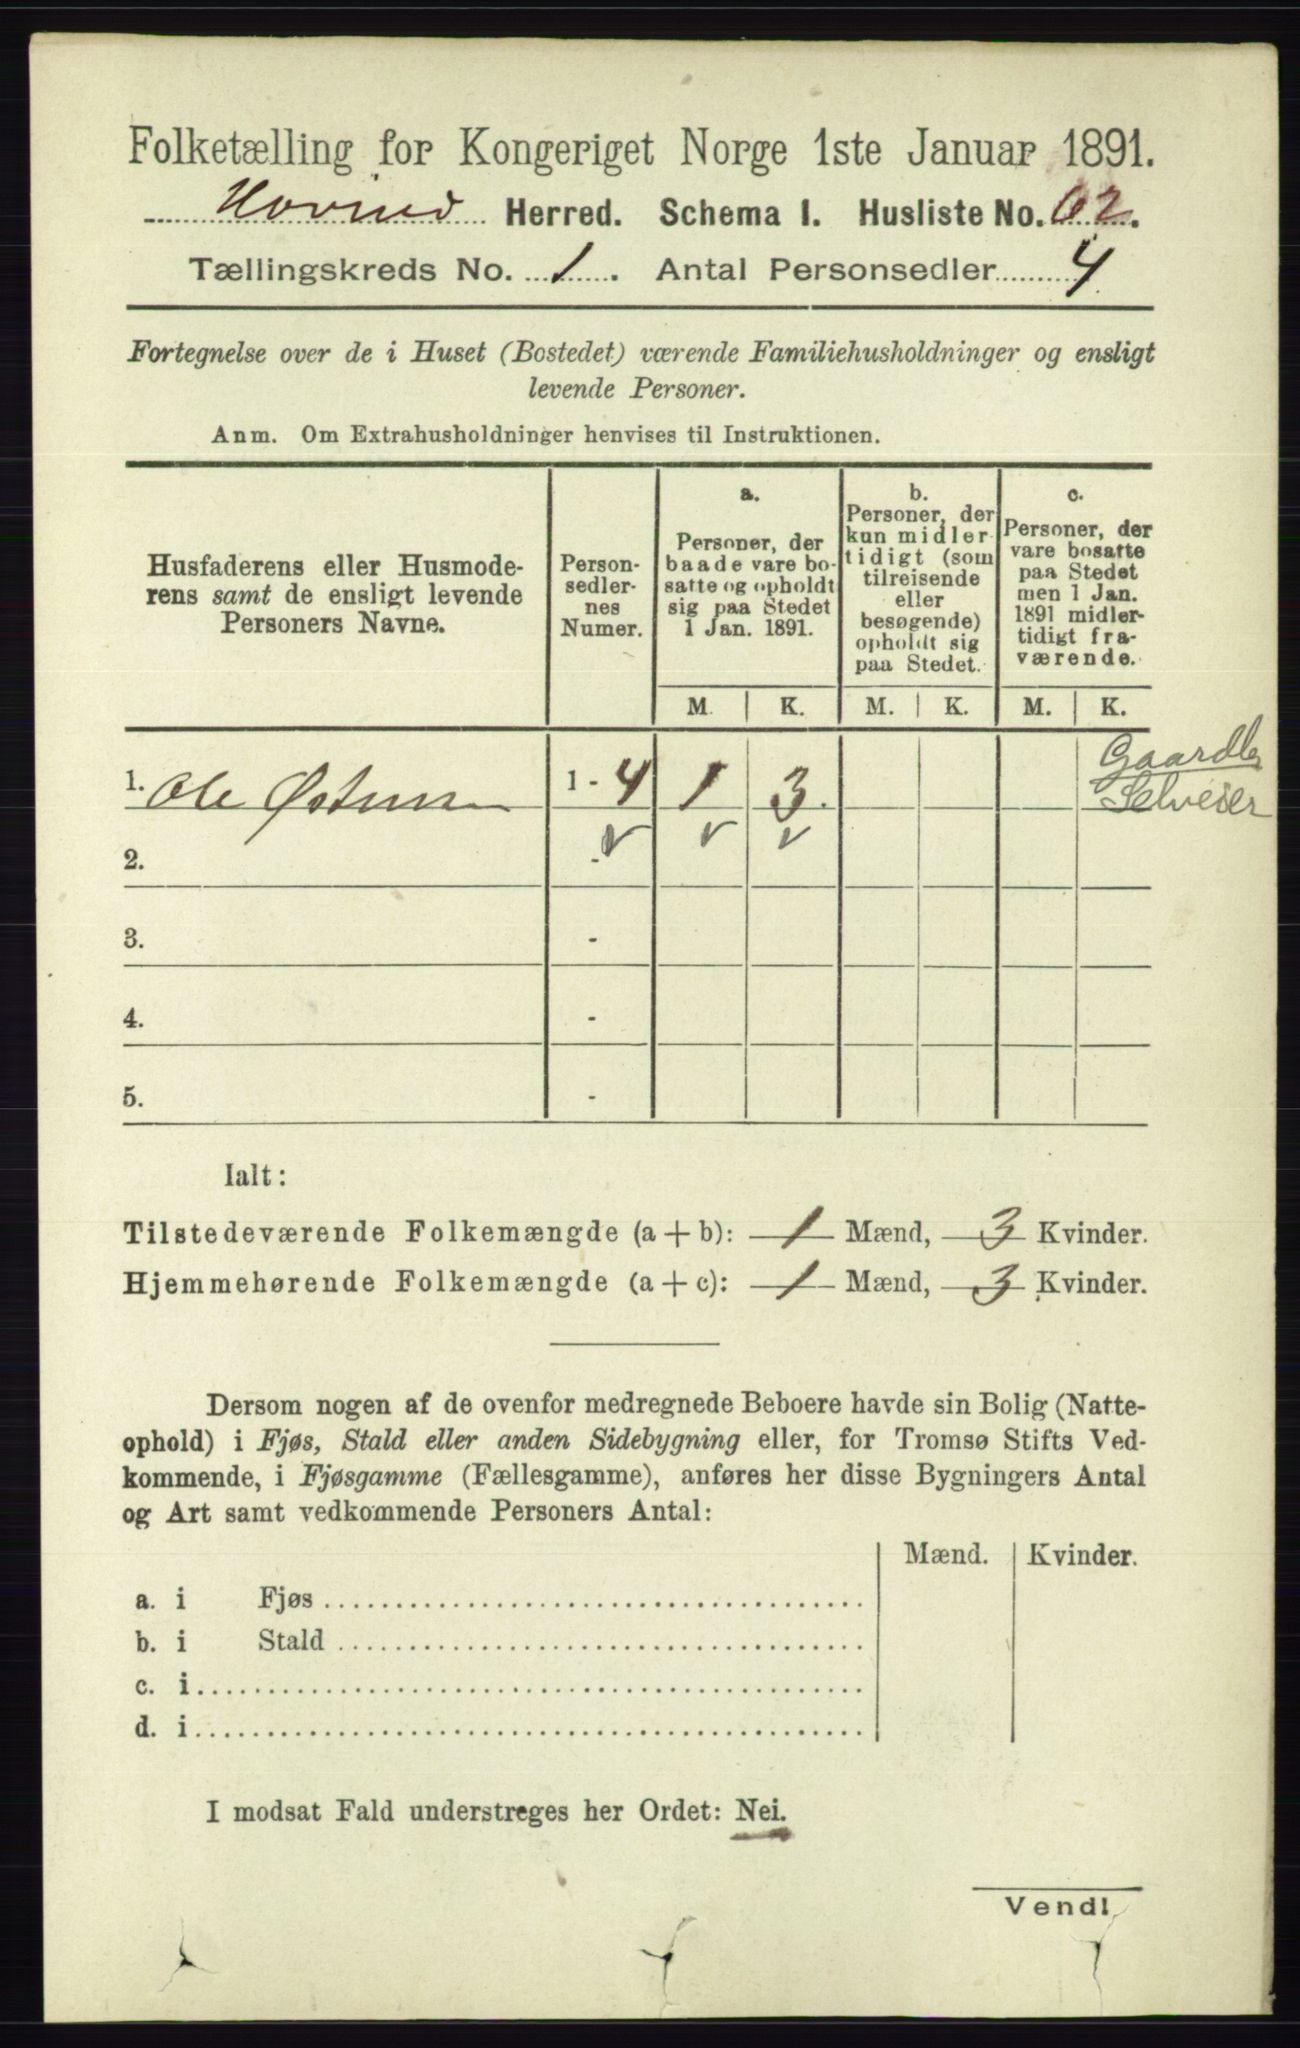 Folketælling for Kongeriget Norge 1ste Januar 1891.
Hovind Herred. Schema I. Husliste No. 62.
Tællingskreds No. 1. Antal Personsedler 4
Fortegnelse over de i Huset (Bostedet) værende Familiehusholdninger og ensligt
levende Personer.
Anm. Om Extrahusholdninger henvises til Instruktionen.
Husfaderens eller Husmode-
rens samt de ensligt levende
Personers Navne.
Person-
sedler-
nes
Numer.
a.
Personer, der
baade vare bo-
satte og opholdt
sig paa Stedet
1 Jan. 1891.
b.
Personer, der
kun midler-
tidigt (som
tilreisende
eller
besøgende)
opholdt sig
paa Stedet.
c.
Personer, der
vare bosatte
paa Stedet
men 1 Jan.
1891 midler-
tidigt fra-
værende.
M. K. M. K. M. K.
1. Ole Østensen 1 - 4 1 3.
Gaardbr
Selveier
2. -
3. -
4. -
5. -
Ialt:
Tilstedeværende Folkemængde (a + b): 1 Mænd, 3 Kvinder.
Hjemmehørende Folkemængde (a + c): 1 Mænd, 3 Kvinder.
Dersom nogen af de ovenfor medregnede Beboere havde sin Bolig (Natte-
ophold) i Fjøs, Stald eller anden Sidebygning eller, for Tromsø Stifts Ved-
kommende, i Fjøsgamme (Fællesgamme), anføres her disse Bygningers Antal
og Art samt vedkommende Personers Antal:
Mænd. Kvinder.
a. i Fjøs
b. i Stald
c. i
d. i
I modsat Fald understreges her Ordet: Nei.
Vend!